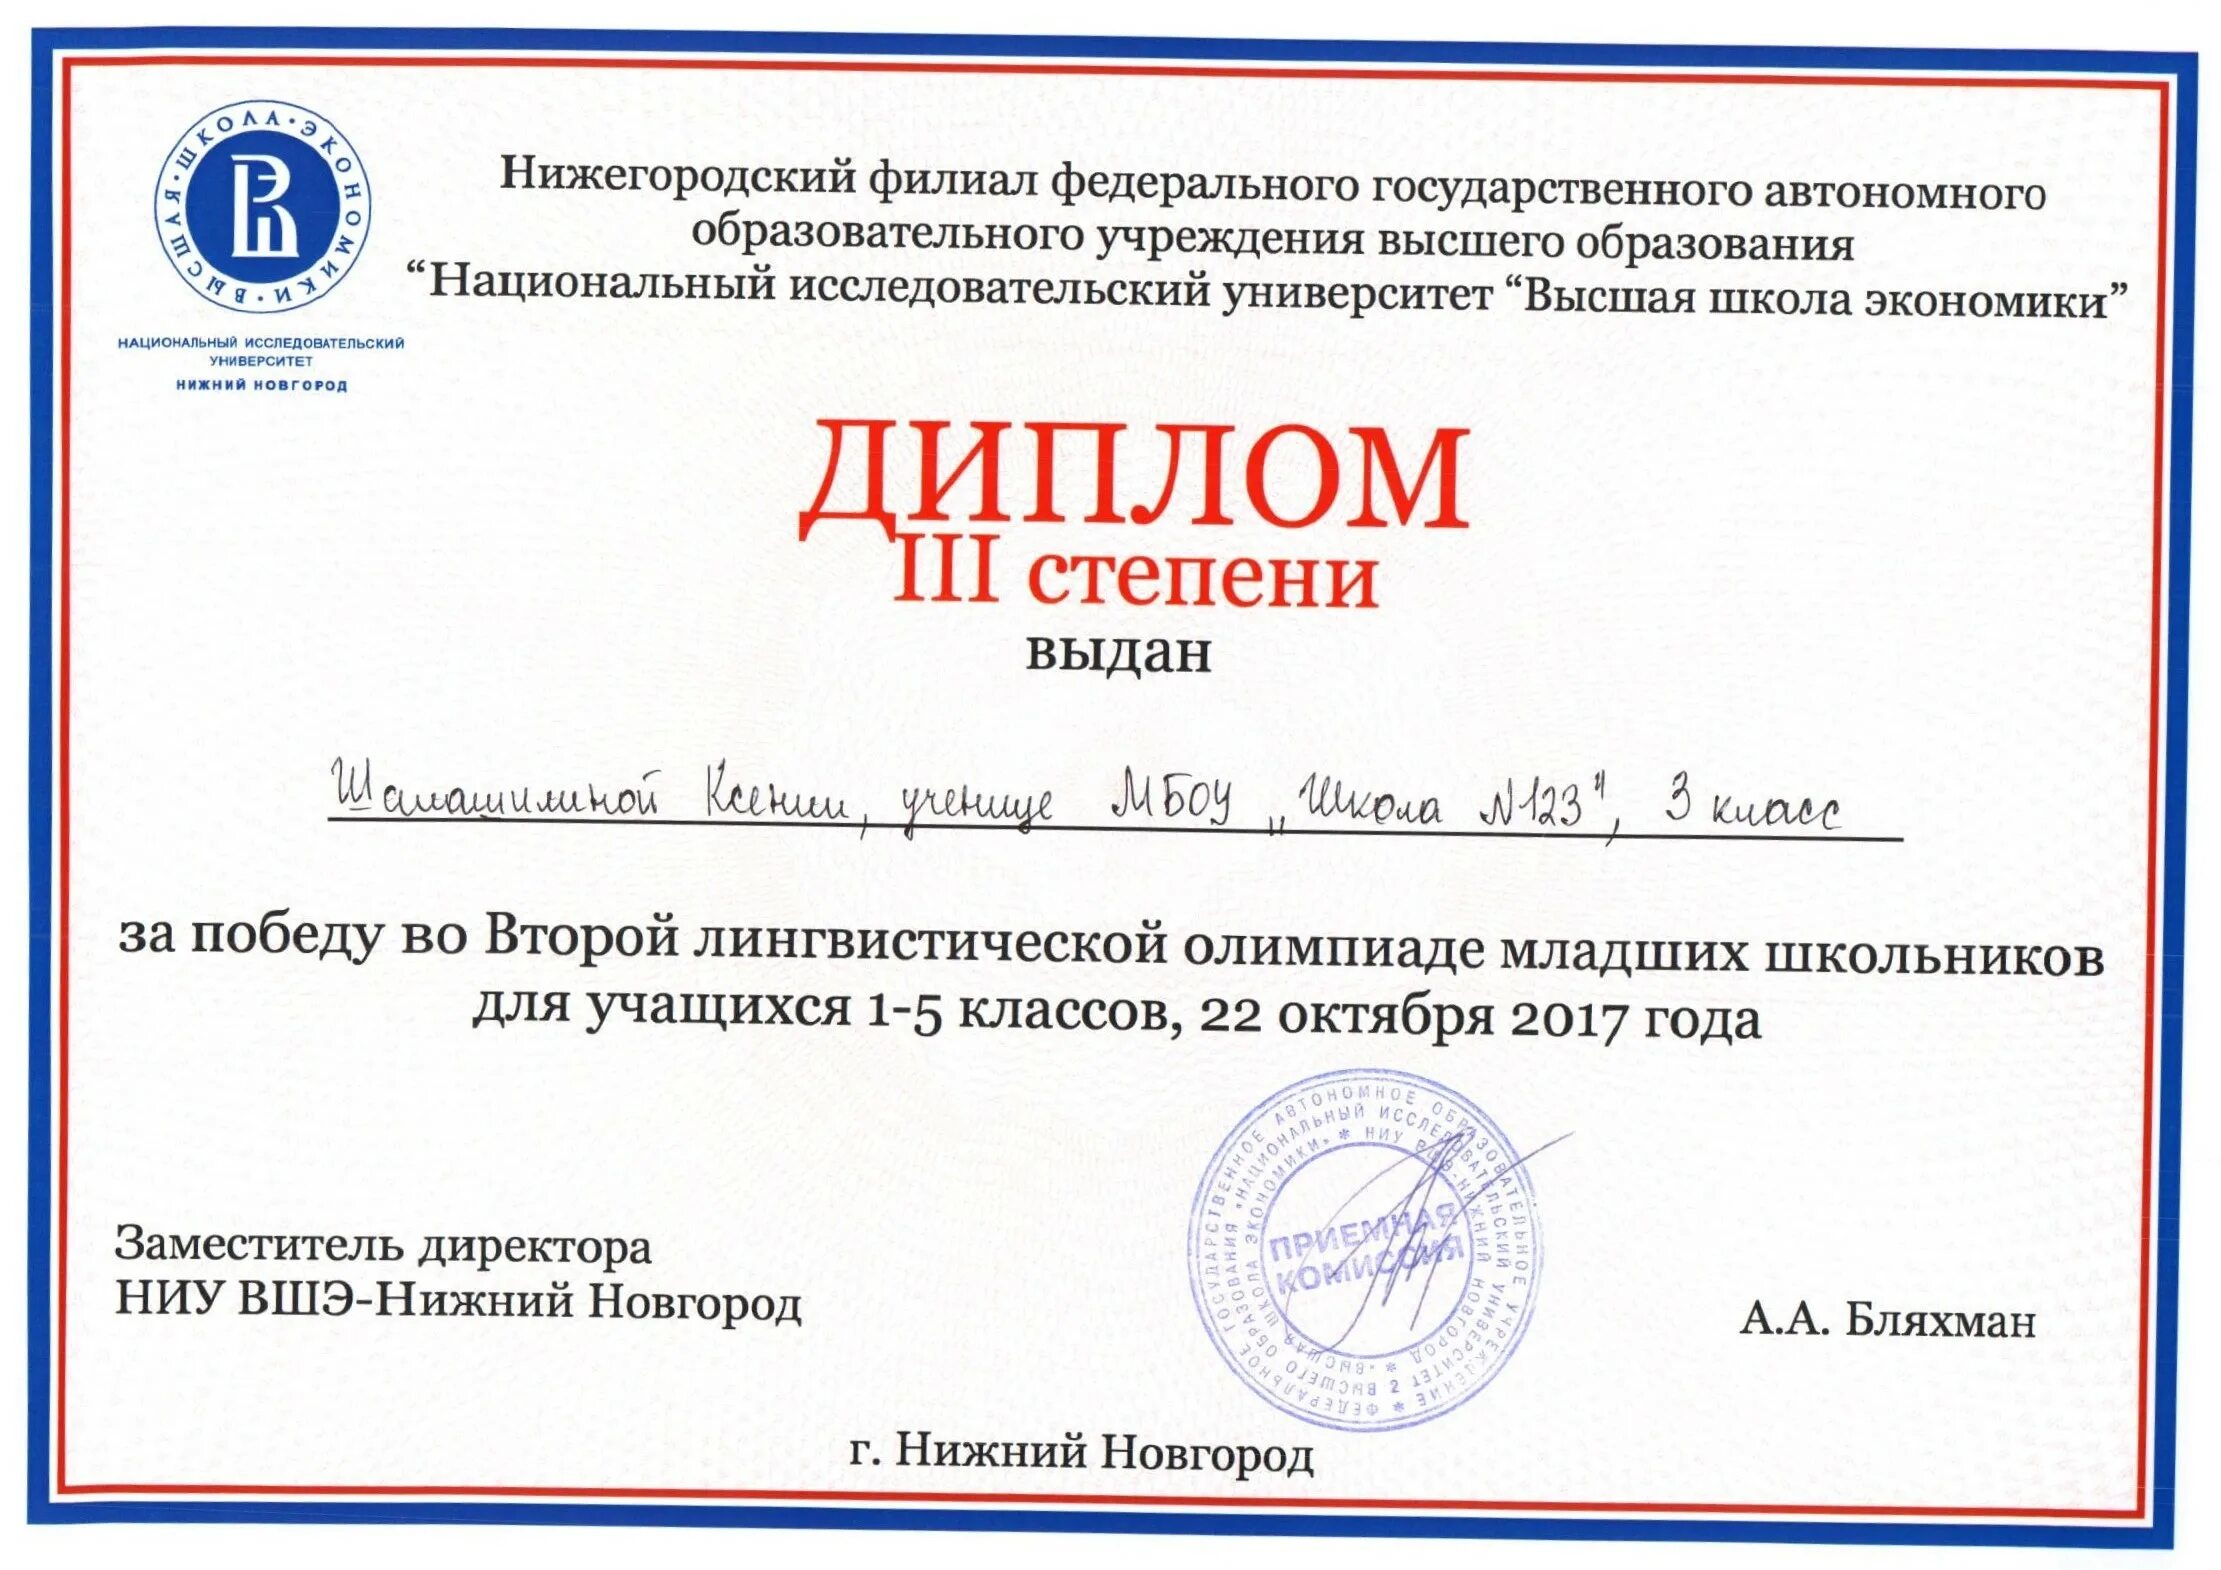 ВЫСШАЯ · ШКОЛА · ЭКОНОМИКИ ·
НАЦИОНАЛЬНЫЙ ИССЛЕДОВАТЕЛЬСКИЙ
УНИВЕРСИТЕТ
НИЖНИЙ НОВГОРОД
Нижегородский филиал федерального государственного автономного
образовательного учреждения высшего образования
“Национальный исследовательский университет “Высшая школа экономики”
ДИПЛОМ
III степени
выдан
Ксении, ученице МБОУ „Школа №123", 3 класс
за победу во Второй лингвистической олимпиаде младших школьников
для учащихся 1-5 классов, 22 октября 2017 года
Заместитель директора
НИУ ВШЭ-Нижний Новгород
ФЕДЕРАЛЬНОЕ ГОСУДАРСТВЕННОЕ АВТОНОМНОЕ ОБРАЗОВАТЕЛЬНОЕ УЧРЕЖДЕНИЕ *
ВЫСШЕГО ОБРАЗОВАНИЯ "НАЦИОНАЛЬНЫЙ ИССЛЕДОВАТЕЛЬСКИЙ УНИВЕРСИТЕТ 2
"ВЫСШАЯ ШКОЛА ЭКОНОМИКИ" * НИУ ВШЭ-НИЖНИЙ НОВГОРОД *
ПРИЕМНАЯ
КОМИССИЯ
А.А. Бляхман
г. Нижний Новгород